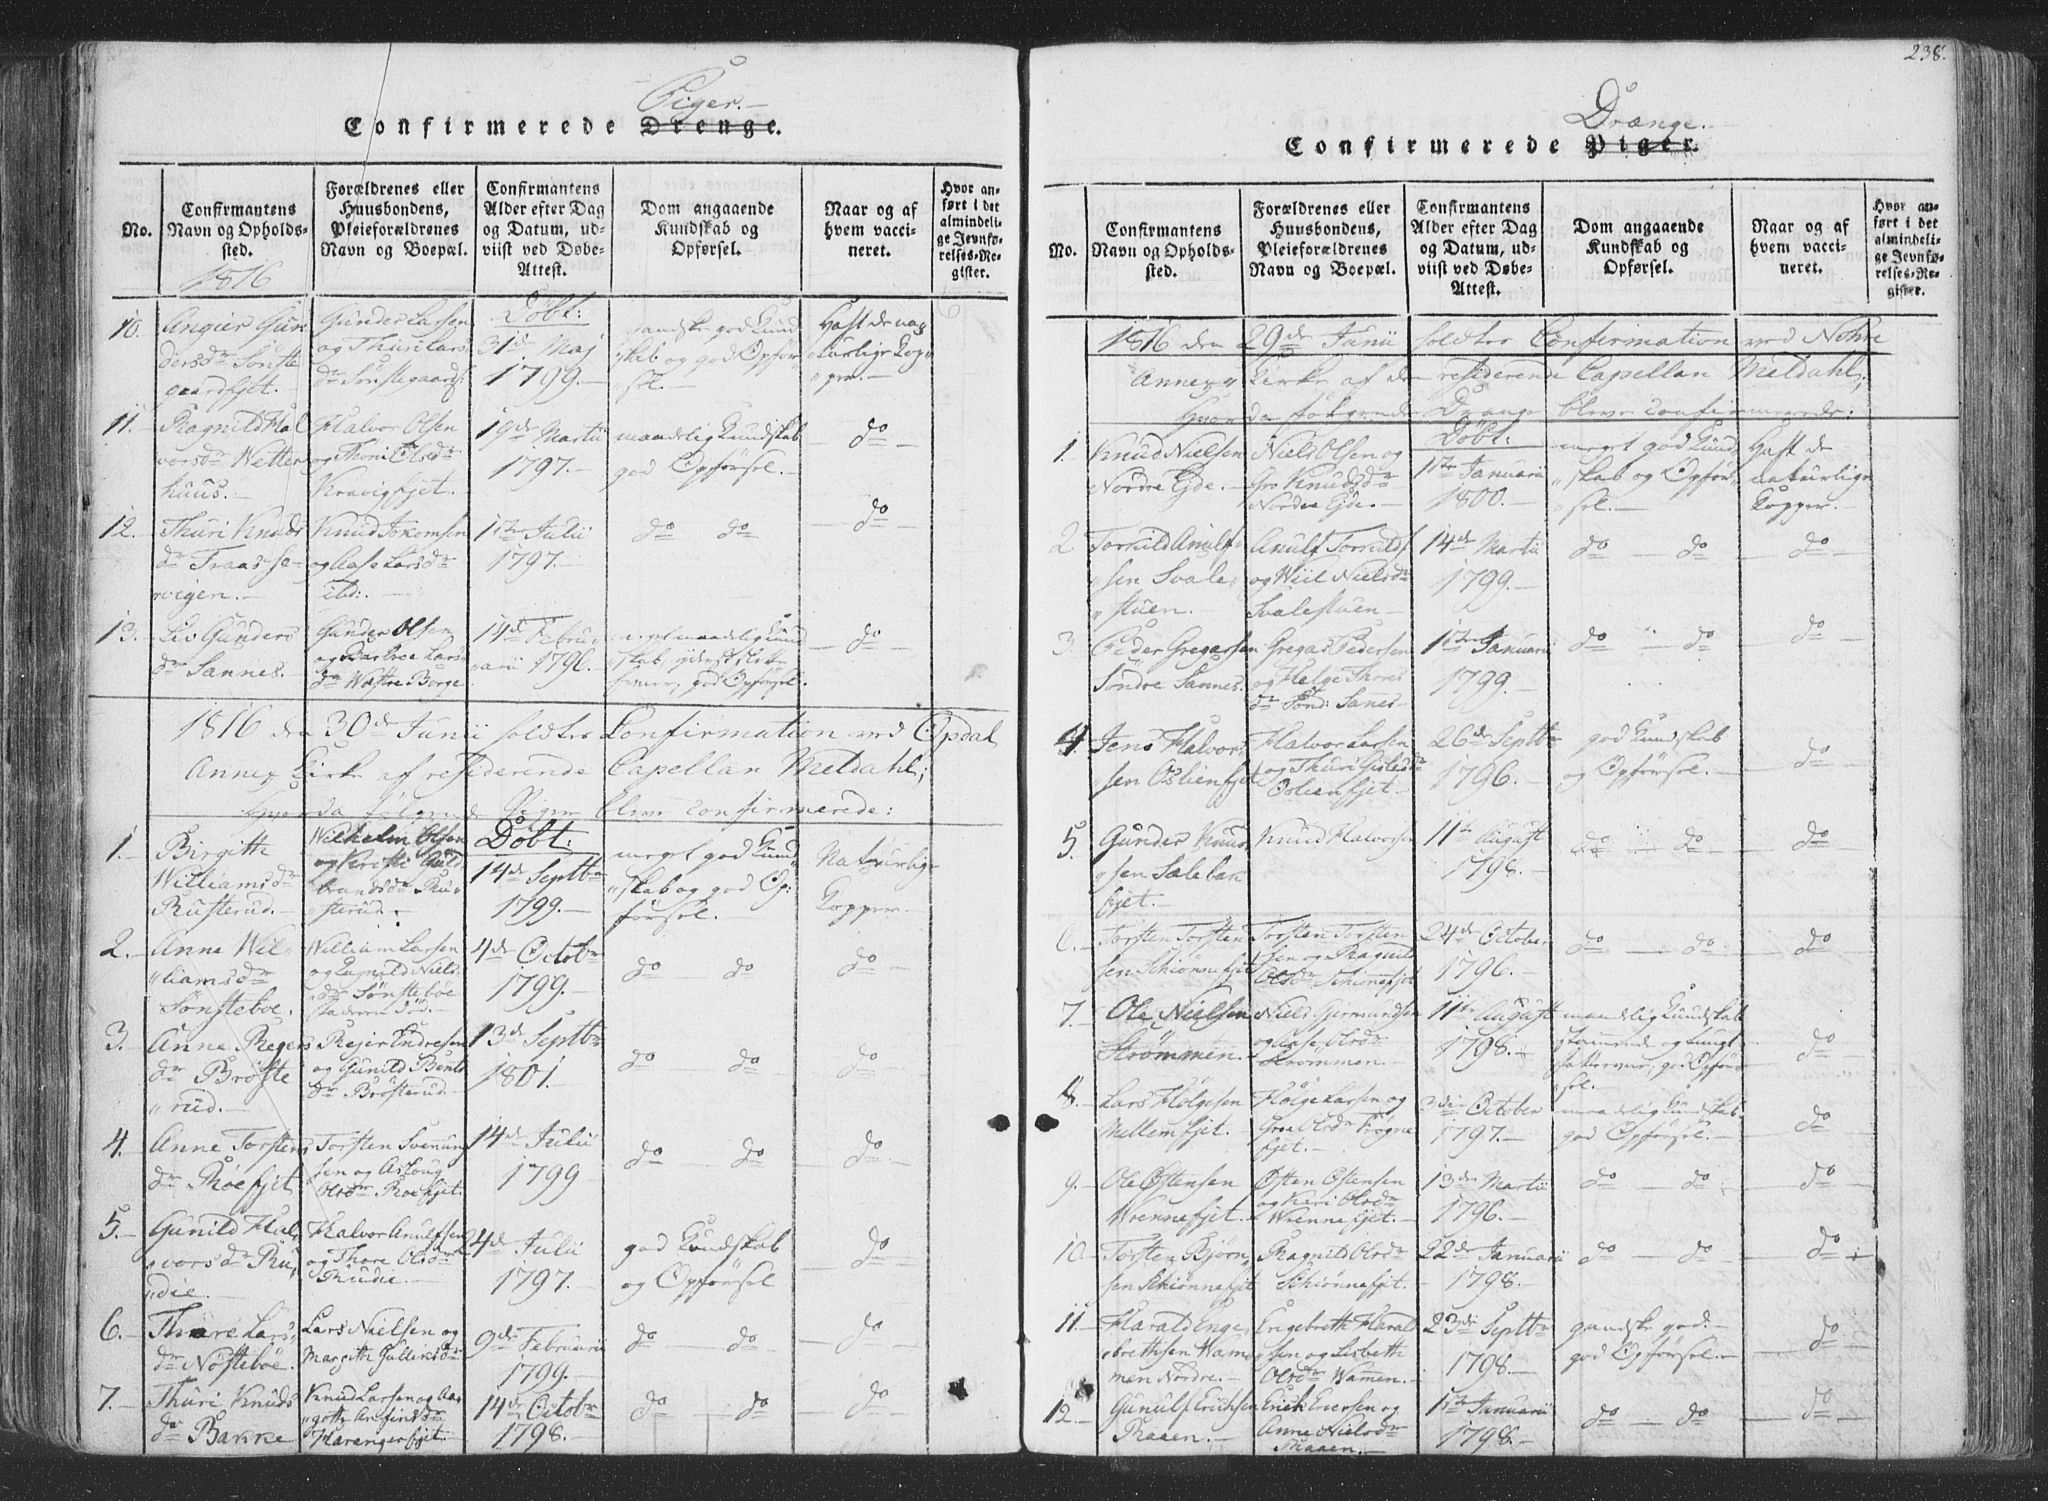 Piger.
Confirmerede Drenge.
No.
Confirmantens
Navn og Opholds-
sted.
1816
Forældrenes eller
Huusbondens,
Pleieforældrenes
Navn og Boepæl.
Confirmantens
Alder efter Dag
og Datum, ud-
viist ved Døbe-
Attest.
Dom angaaende
Kundskab og
Opførsel.
Naar og af
hvem vacci-
neret.
Hvor an-
ført i det
almindeli-
ge Jevnfø-
relses-Re-
gister.
10.
Gunder Larsen
Döbt:
31de Maj
1799.
ganske god Kund
skab og god Opför
sel.
Haft de na
turlige Kop
per.
11.
Ragnild Hal
vorsdr Wetter
huus.
Halvor Olsen
og Thoni Olsdr
Kravigfjet.
19de Martii
1797.
maadelig Kundskab
god Opförsel.
do
12.
Thuri Knuds
dr Fraas-se-
vigen.
og Aase Larsdr
ibid:
1ste Julii
1797.
do do
do
13.
Liv Gunders
dr Sannes.
Gunder Olsen
dr Wæstre Borge
14de Febru
arii 1796.
god Opförsel.
do
1816 den 30de Junii holdtes Confirmation ved Opdal
Annex Kirke af residerende Capellan Meldahl;
Hvorda følgende Piger bleve confirmerede:
1.
Birgith
Williamsdr
Rusterud.
Wilhelm Olsen
brandsdr Ru
sterud.
Döbt:
14de Septbr
1799.
meget god Kund
skab og god Op:
försel.
Naturlige
Kopper.
2.
Anne Wil
liamsdr
Sönsteboe.
William Larsen
og Ragnild Niels
dr Sönsteböe
1799.
4de Octobr
do do
do
3.
Anne Regers
dr Bröste
rud.
Rejer Endresen
og Gunild Bents
dr Brösterud.
13de Septbr
1801.
do do
do
4.
Anne Torstens
dr Roefjet
Torsten Svenun
sen og Asloug
Olsdr Roefjet.
14de Julii
1799
do do
do
5.
Gunild Hal
vorsdr Ru
die.
Halvor Anulfsen
og Thore Olsdr
Rudie.
4de Julii
1797.
god Kundskab
og Opförsel
do
6.
Thore Lars
dr Nösteböe.
Lars Nielsen og
Margith Gulliksdr
Nösteböe
9de Februarii
1799.
do do
do
7.
Thuri Knuds
dr Bakke
Knud Larsen og Aa
14de Octobr
1798.
do do
do
238.
Drænge.
Confirmerede Piger.
No.
Confirmantens
Navn og Opholds-
sted.
Forældrenes eller
Huusbondens,
Pleieforældrenes
Navn og Boepæl.
Confirmantens
Alder efter Dag
og Datum, ud-
viist ved Døbe-
Attest.
Dom angaaende
Kundskab og
Opførsel.
Naar og af
hvem vacci-
neret.
Hvor an-
ført i det
almindeli-
ge Jevnfø-
relses-Re-
gister.
1816 den 29de Junii holdtes Confirmation ved Nohre
Annex Kirke af den residerende Capellan Meldahl;
Hvorda følgende Drænge bleve confirmerede:
1.
Knud Nielsen
Nordre Ejde.
Niels Olsen og
Gro Knudsdr
Nordre Ejde.
Döbt:
1ste Januarii
1800.
meget god Kund
skab og Opför
sel.
Haft de
naturlige
Kopper.
2
Torkild Anulf
sen Svale
stuen.
Anulf Torkilds
og Wiil Nielsdr
Svalestuen
14de Martii
1799.
do do
do
3.
Peder Gregarsen
Söndre Sannes.
Gregar Pedersen
og Helge Thores
dr Sönd: Sanes
1ste Januarii
1799.
do do
do
4.
Jens Halvor
sen Oslienfjet
Halvor Larsen
Oslienfjet.
26de Septbr
1796.
god Kundskab
og Opförsel.
do
5.
Gunder Knud
fjet.
Knud Halvorsen
11te August
1798.
do do
do
6.
Torsten Torsten
sen Schiönnefjet
Torsten Torsten
sen og Ragnild
Olsdr Schiönnefjet
24de October
1796.
do do
do
7.
Ole Nielsen
Strömmen.
Niels Germundsen
og Aase Olsdr
Strömmen.
11te August
1798.
maadelig Kundskab
sel.
do
8.
Lars Hölgesen
Mellemfjet.
Hölge Larsen og
Groe Olsdr Frögne
fjet.
3die October
1797.
maadelig Kundskab
god Opförsel.
do
9.
Ole Östensen
Wrennefjet.
Östen Östensen
og Kari Olsdr
Wrennefjet.
13de Martii
1796.
do do
do
10.
Torsten Björn
sen Schiönnefjet
Ragnild Olsdr
Schiönnefjet.
22de Januarii
1798.
do do
do
11.
Harald Enge
brethsen Wam
men Nordre.
Engebreth Harald
sen og Lisbeth
Olsdr Wamen.
23de Septbr
1798.
ganske god.
god Opförsel.
do
12.
Gunulf Erichsen
Raaen.
Anne Nielsdr
Raaen.
1ste Januarii
1798.
do do
do